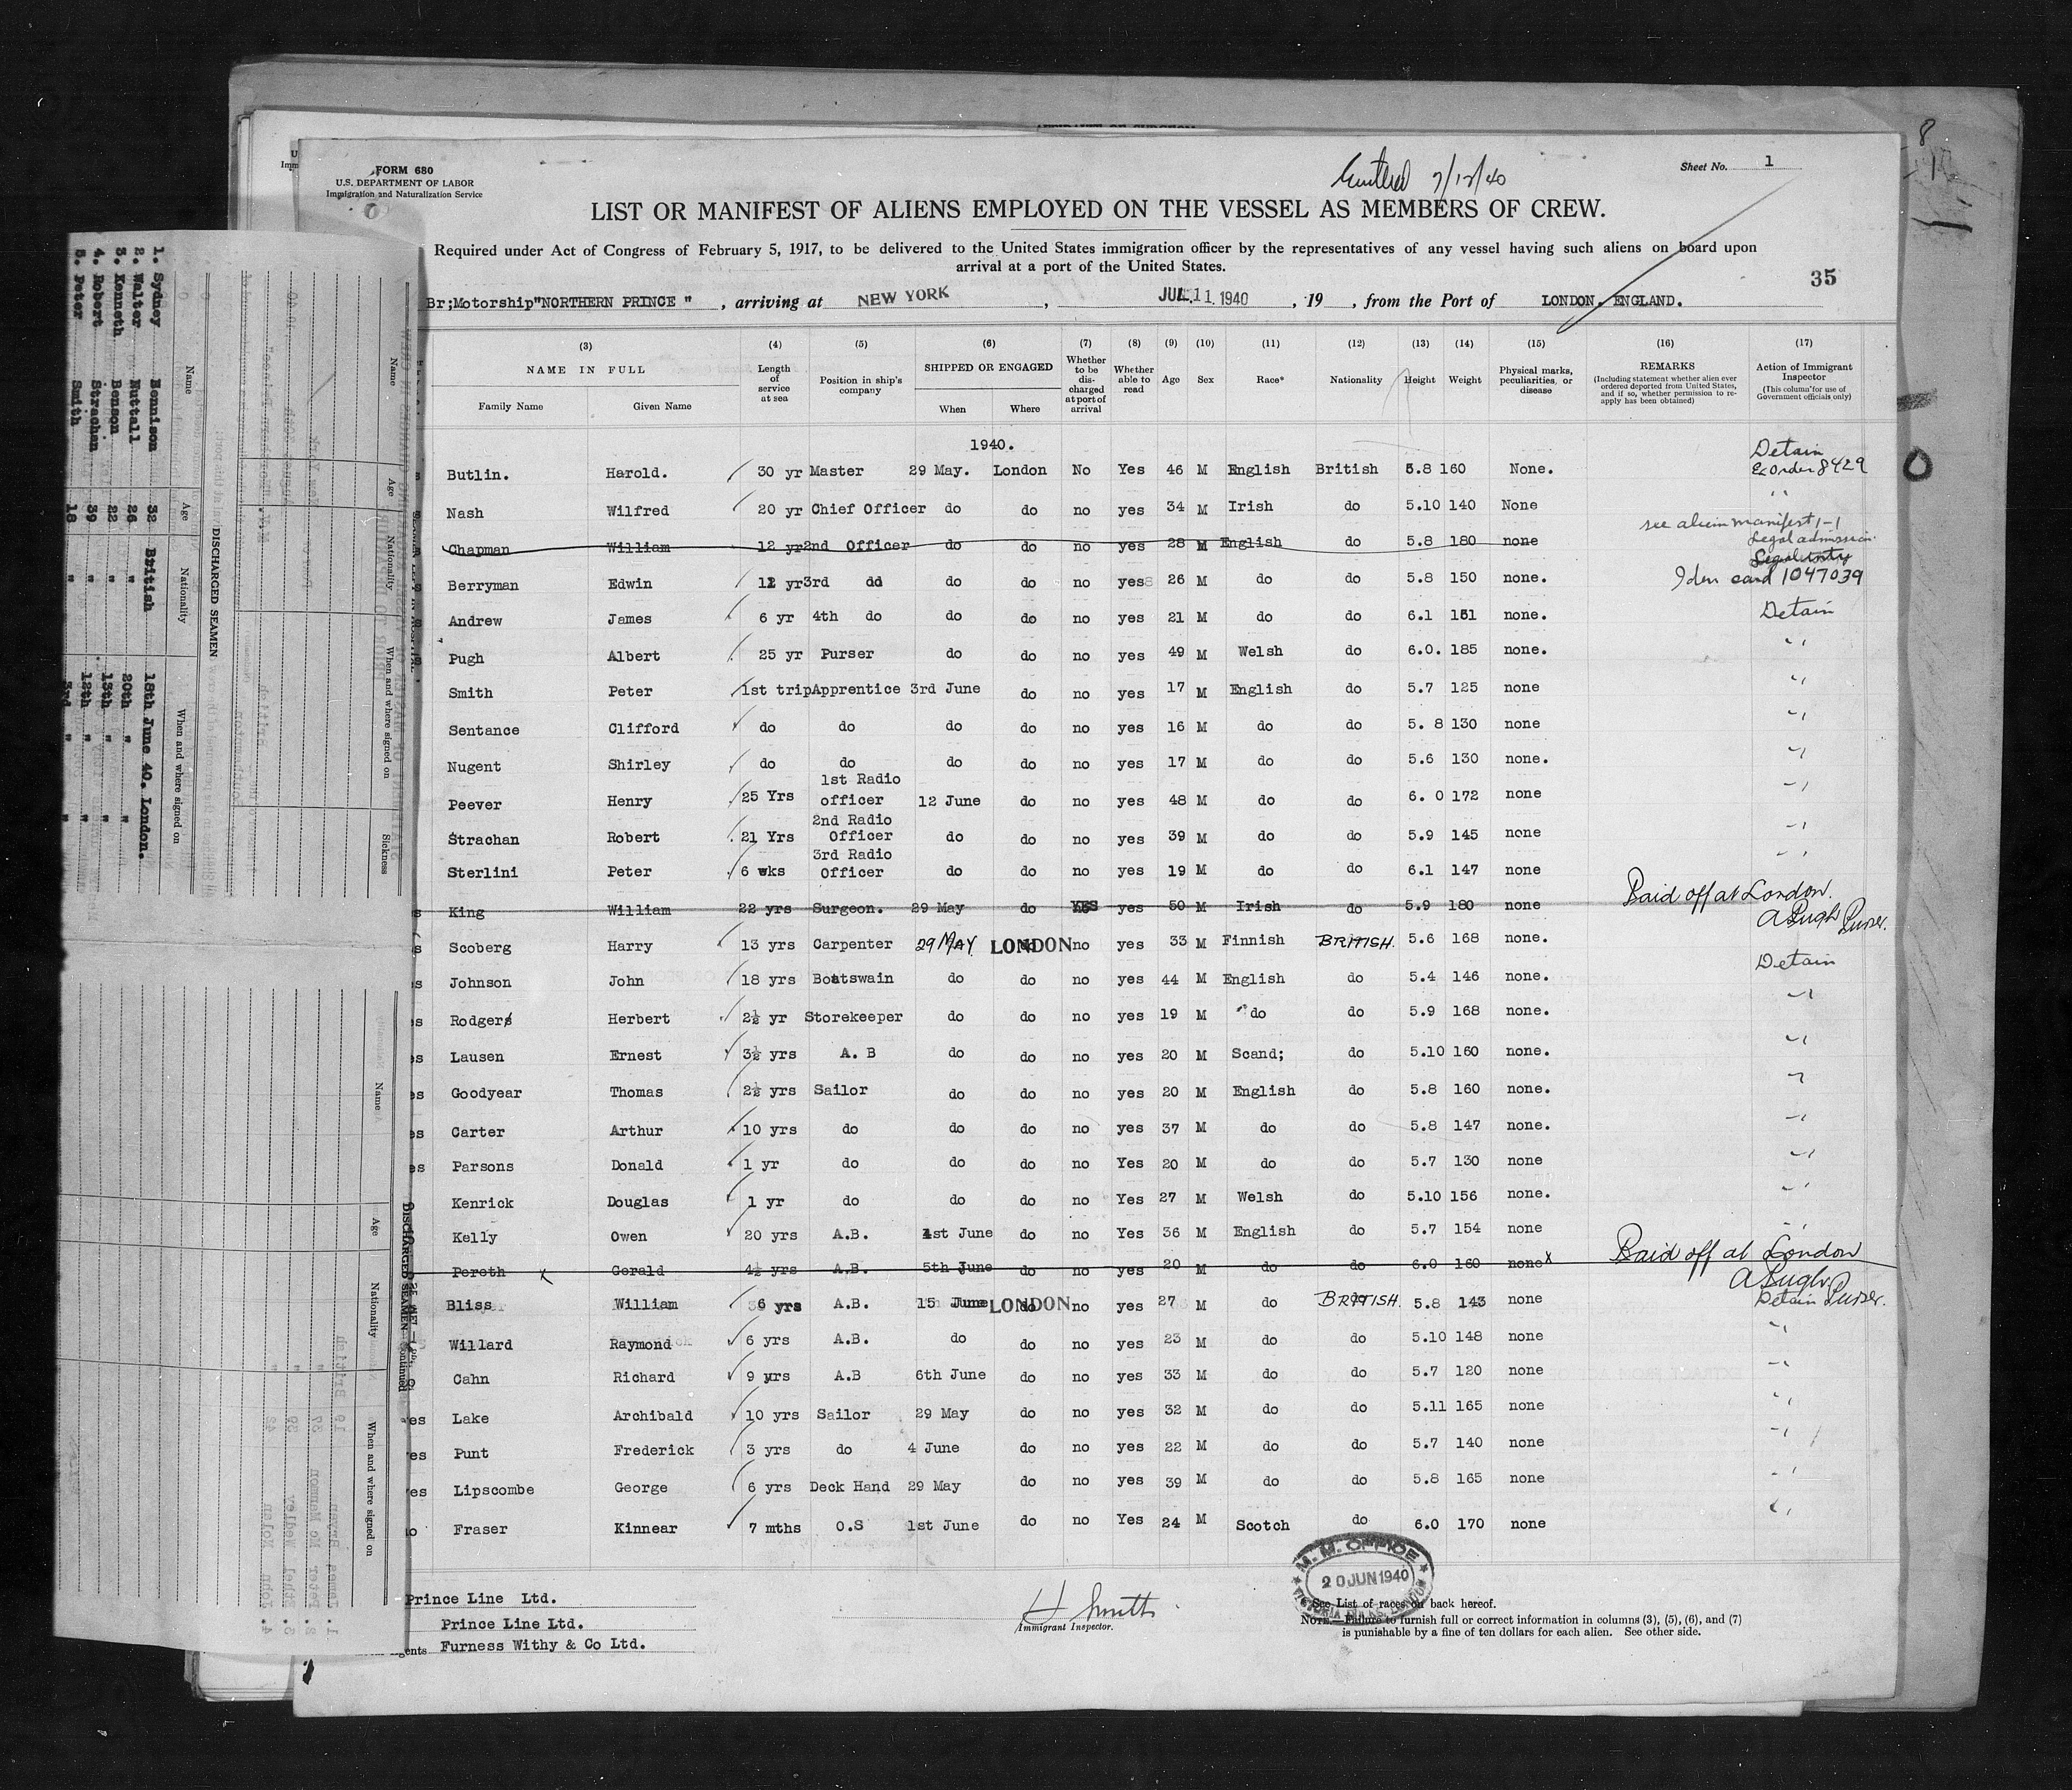 FORM 680
U.S. DEPARTMENT OF LABOR
Immigration and Naturalization Service
7/12/40
Sheet No. 1
LIST OR MANIFEST OF ALIENS EMPLOYED ON THE VESSEL AS MEMBERS OF CREW.
Required under Act of Congress of February 5, 1917, to be delivered to the United States immigration officer by the representatives of any vessel having such aliens on board upon
arrival at a port of the United States.
35
Br;Motorship"NORTHERN PRINCE " , arriving at NEW YORK , JUL 11 1940 , 19 , from the Port of LONDON. ENGLAND.
(3) (4) (5) (6) (7) (8) (9) (10) (11) (12) (13) (14) (15) (16) (17)
NAME IN FULL
Family Name Given Name
Length of service at sea
Position in ship's company
SHIPPED OR ENGAGED
When Where
Whether to be discharged at port of arrival
Whether able to read
Age Sex Race* Nationality Height Weight
Physical marks, peculiarities, or disease
REMARKS
(Including statement whether alien ever ordered deported from United States, and if so, whether permission to reapply has been obtained)
Action of Immigrant Inspector
(This column for use of Government officials only)
1940.
Detain
Butlin. Harold. 30 yr Master 29 May. London No Yes 46 M English British 5.8 160 None. Ex Order 8429
Nash Wilfred 20 yr Chief Officer do do no yes 34 M Irish do 5.10 140 None "
see alien manifest 1-1
Legal admission
Chapman William 12 yr 2nd Officer do do no yes 28 M English do 5.8 180 none
Legal entry
Iden card 1047039
Berryman Edwin 12 yr 3rd do do do no yes 26 M do do 5.8 150 none.
Andrew James 6 yr 4th do do do no yes 21 M do do 6.1 151 none. Detain
Pugh Albert 25 yr Purser do do no yes 49 M Welsh do 6.0. 185 none. "
Smith Peter 1st trip Apprentice 3rd June do no yes 17 M English do 5.7 125 none "
Sentance Clifford do do do do no yes 16 M do do 5. 8 130 none "
Nugent Shirley do do do do no yes 17 M do do 5.6 130 none. "
Peever Henry 25 Yrs 1st Radio officer 12 June do no yes 48 M do do 6. 0 172 none "
Strachan Robert 21 Yrs 2nd Radio Officer do do no yes 39 M do do 5.9 145 none "
Sterlini Peter 6 wks 3rd Radio Officer do do no yes 19 M do do 6.1 147 none "
King William 22 yrs Surgeon. 29 May do YES yes 50 M Irish do 5.9 180 none Paid off at London.
A Pugh Purser.
Scoberg Harry 13 yrs Carpenter 29 MAY LONDON no yes 33 M Finnish BRITISH. 5.6 168 none.
Detain
Johnson John 18 yrs Boatswain do do no yes 44 M English do 5.4 146 none. "
Rodgers Herbert 2½ yr Storekeeper do do no yes 19 M do do 5.9 168 none. "
Lausen Ernest 3½ yrs A. B do do no yes 20 M Scand; do 5.10 160 none. "
Goodyear Thomas 2½ yrs Sailor do do no yes 20 M English do 5.8 160 none. "
Carter Arthur 10 yrs do do do no yes 37 M do do 5.8 147 none. "
Parsons Donald 1 yr do do do no Yes 20 M do do 5.7 130 none "
Kenrick Douglas 1 yr do do do no Yes 27 M Welsh do 5.10 156 none. "
Kelly Owen 20 yrs A.B. 1st June do no Yes 36 M English do 5.7 154 none "
Peroth Gerald 4½ yrs A.B. 5th June do no yes 20 M do do 6.0 160 none x Paid off at London
A Pugh Purser.
Bliss William 6 yrs A.B. 15 June LONDON no yes 27 M do BRITISH. 5.8 143 none Detain
Willard Raymond 6 yrs A.B. do do no yes 23 M do do 5.10 148 none "
Cahn Richard 9 yrs A.B 6th June do no yes 33 M do do 5.7 120 none "
Lake Archibald 10 yrs Sailor 29 May do no yes 32 M do do 5.11 165 none "
Punt Frederick 3 yrs do 4 June do no yes 22 M do do 5.7 140 none "
Lipscombe George 6 yrs Deck Hand 29 May do no yes 39 M do do 5.8 165 none "
Fraser Kinnear 7 mths O.S 1st June do no Yes 24 M Scotch do 6.0 170 none "
Prince Line Ltd.
Prince Line Ltd.
Furness Withy & Co Ltd.
H. Smith
Immigrant Inspector.
M. M. OFFICE
20 JUN 1940
See List of races on back hereof.
NOTE.—Failure to furnish full or correct information in columns (3), (5), (6), and (7)
is punishable by a fine of ten dollars for each alien. See other side.
DISCHARGED SEAMEN
Name Age Nationality When and where signed on
1. Sydney Bennison 32 British 18th June 40. London.
2. Walter Nuttall 26 " 20th " "
3. Kenneth Benson 22 " 13th " "
4. Robert Strachan 39 " 12th " "
5. Peter Smith 18 " 3rd " "
Name Age Nationality When and where signed on Sickness
DISCHARGED SEAMEN—Continued
Name Age Nationality When and where signed on